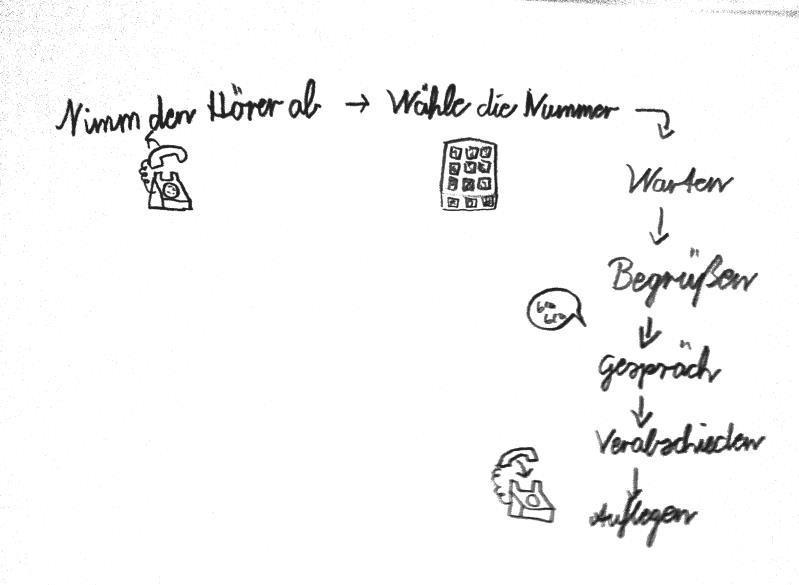 Nimm den Hörer ab → Wähle die Nummer
Warten
Begrüßen
Gespräch
Verabschieden
Auflegen